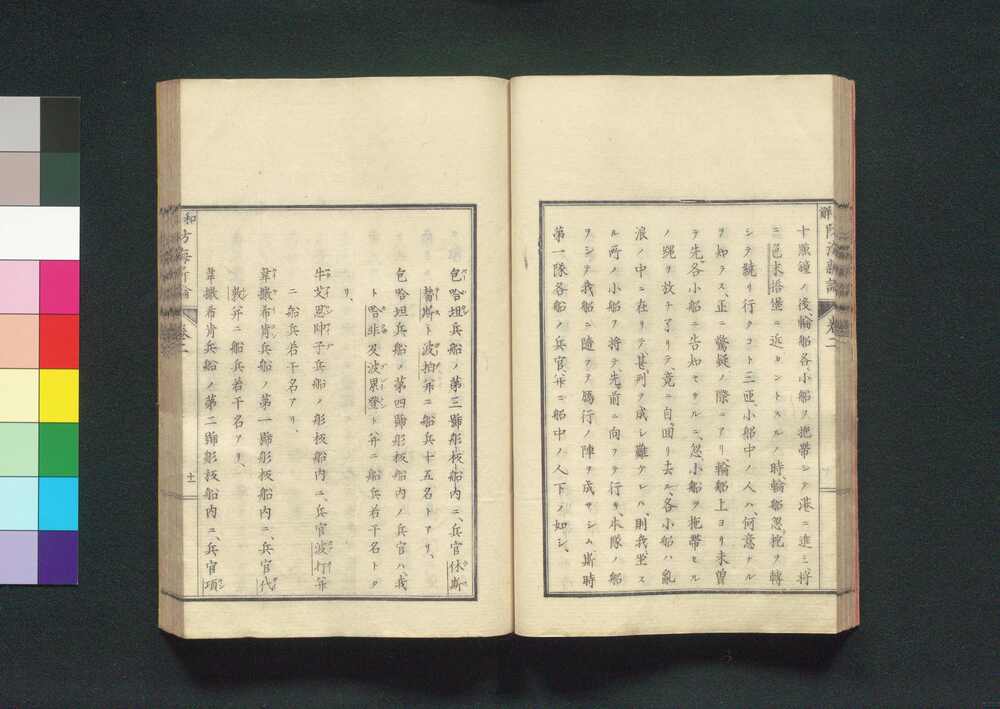 十點鐘ノ後、輪船各小船ヲ拖帶シテ港ニ進ミ、將
ニ邑末搭堡ニ近カントスルノ時、輪船忽、柁ヲ轉
シテ繞リ行クコト三匝、小船中ノ人ハ、何意ナル
ヲ知ラス、正ニ驚疑ノ際ニアリ、輪船上ヨリ未曾
テ先、各小船ニ告知セサルニ、忽小船ヲ拖帶セル
ノ繩ヲ放チ了リテ、竟ニ自、回リ去ル、各小船ハ亂
浪ノ中ニ在リテ、甚列ヲ成シ難ケレハ、則我、坐ス
ル所ノ小船ヲ將テ、先、前ニ向ヲテ行キ、本隊ノ船
ヲシテ我船ニ隨テテ、鴈行ノ陣ヲ成サシム、斯時
第一隊各船ノ兵官、并ニ船中ノ人下ノ如シ、
包哈坦兵船ノ第三號彤板船内ニ、兵官休斯
ト波拍并ニ船兵十五名トアリ、
包哈坦兵船ノ第四號彤板船内ノ兵官ハ、我
ト哈非及波累登ト并ニ船兵若干名トタ
リ、
牛艾恩帥子兵船ノ彤板船内ニ、兵官波打并
ニ船兵若干名アリ、
韋撒希肯兵船ノ第一號彤板船内ニ、兵官代
敦并ニ船兵若干名アリ、
韋撒希肯兵船ノ第二號彤板船内ニ、兵官項
卷二
十